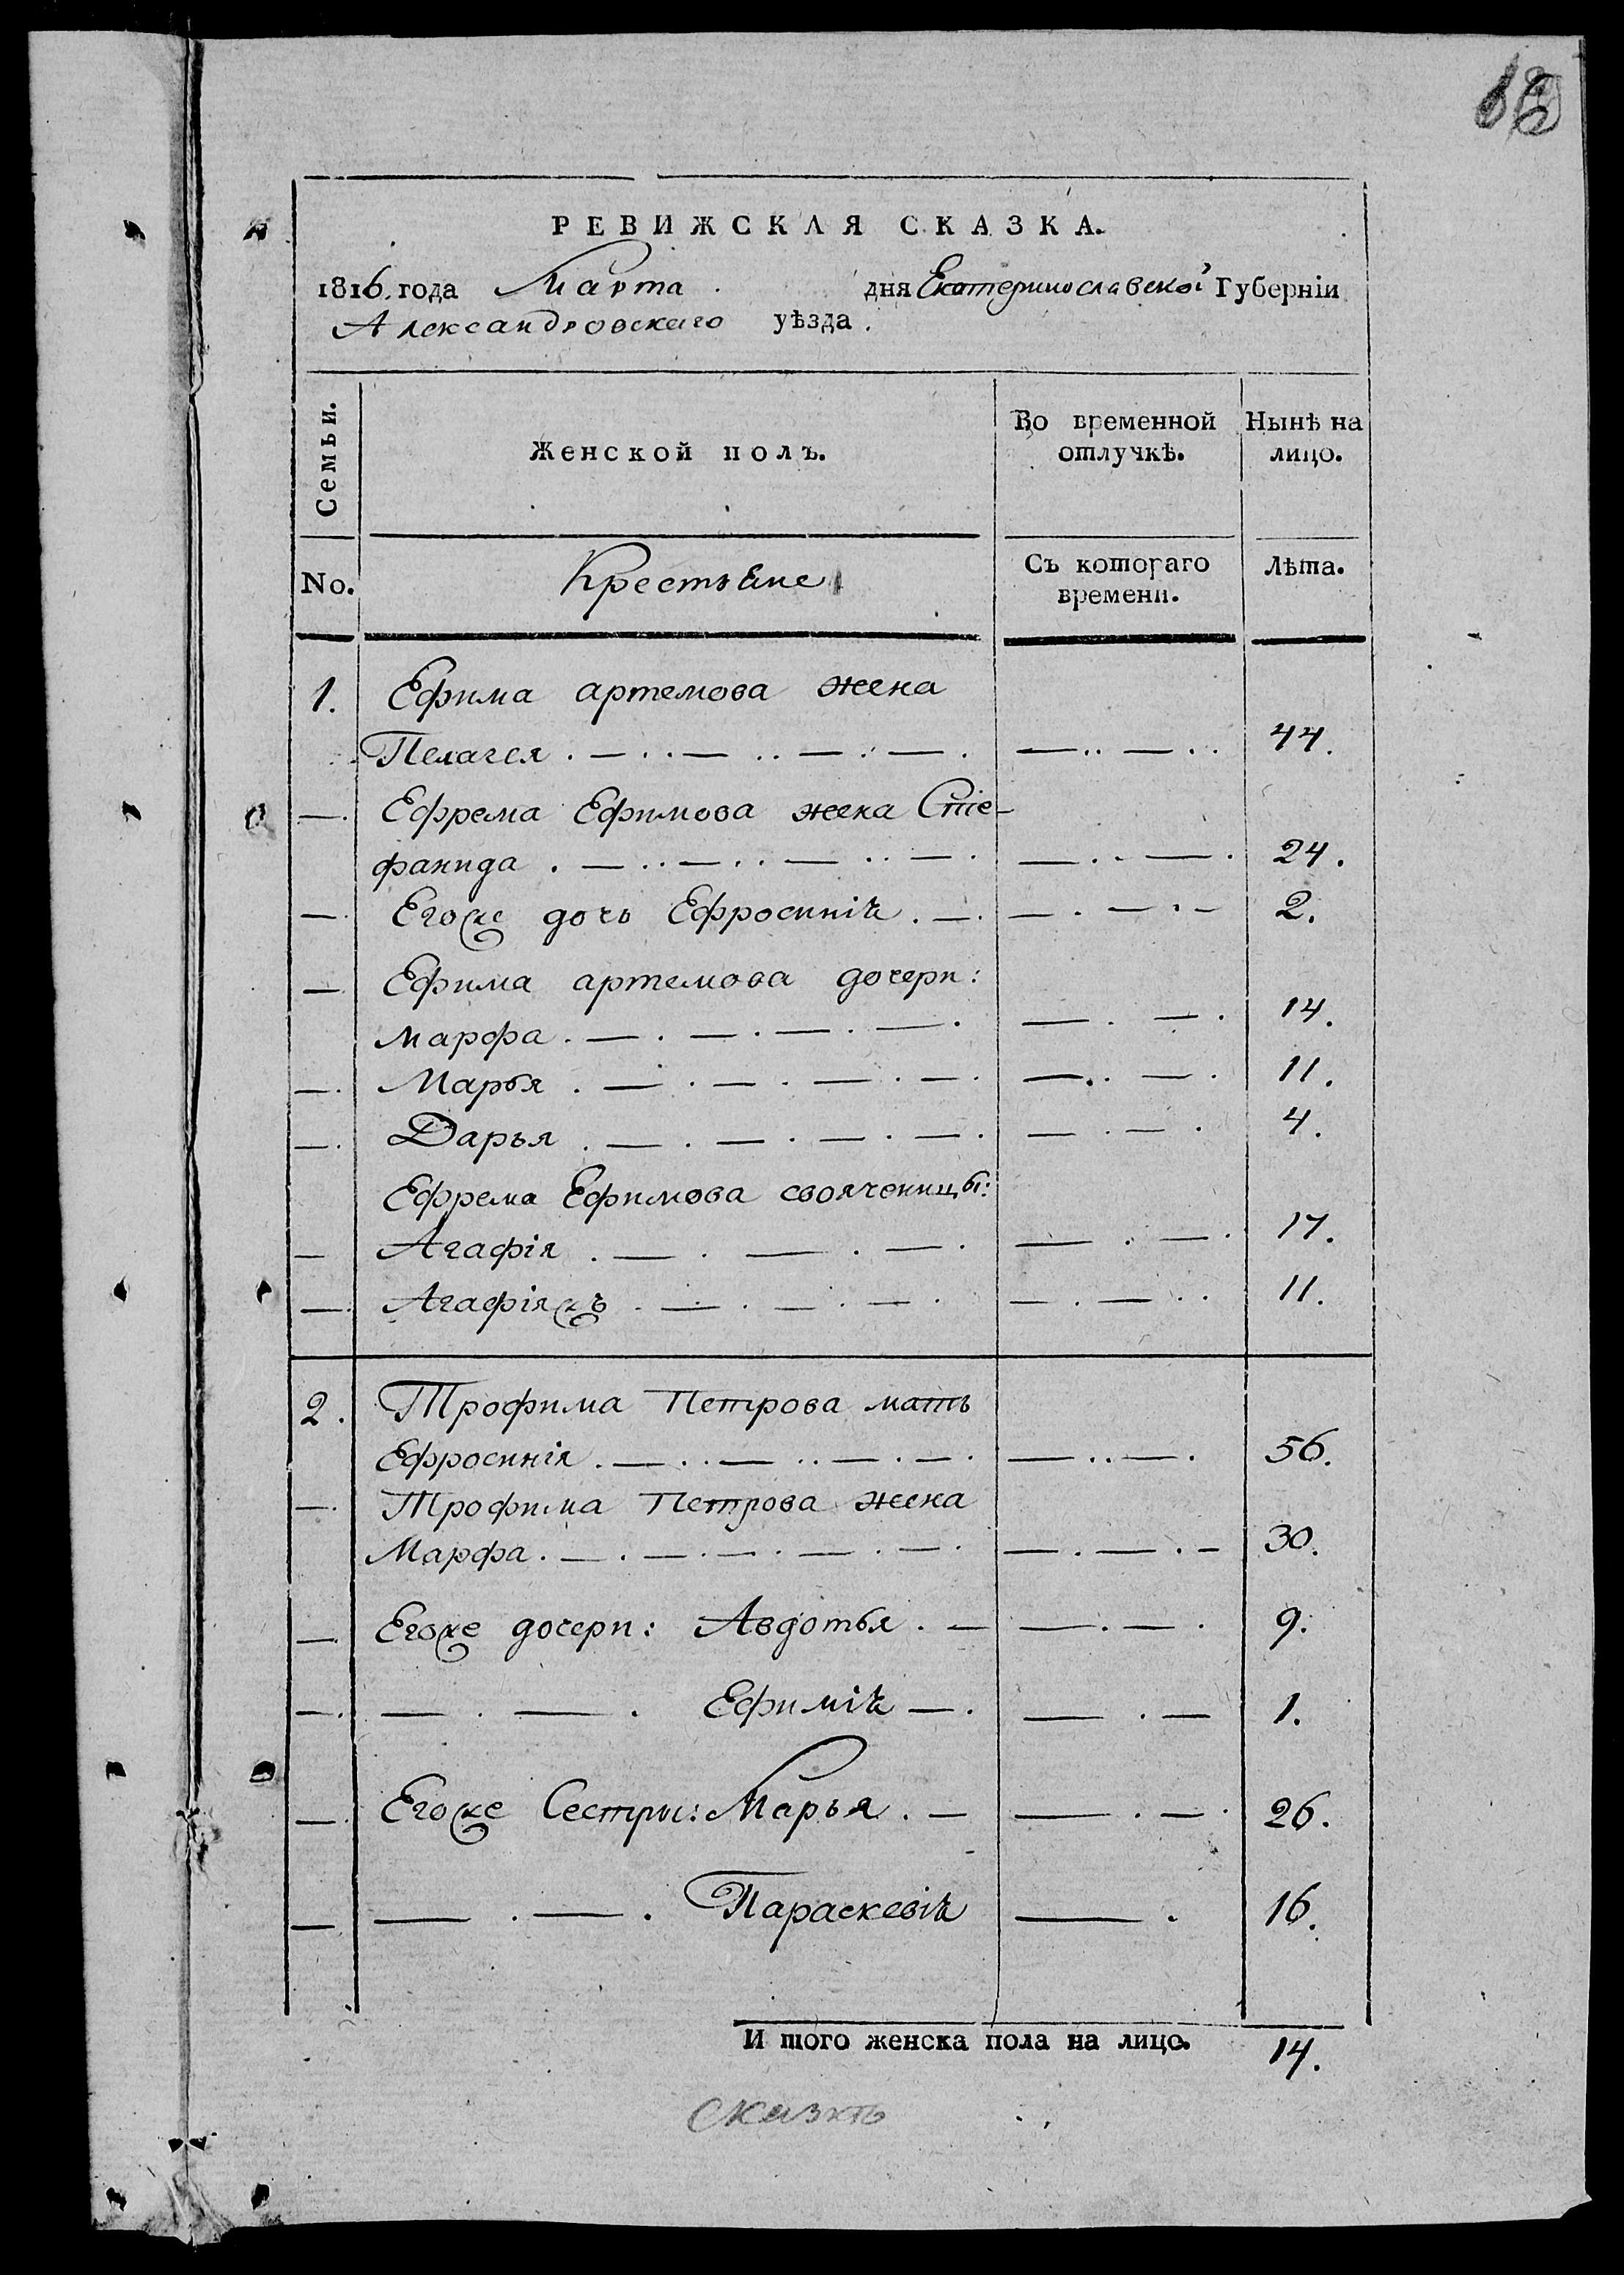 РЕВИЖСКАЯ СКАЗКА.
1816. года Марта дня Екатеринославской Губерніи
Александровскаго уѣзда.
Семьи.
Женской полъ.
Во временной отлучкѣ.
Нынѣ на лицо.
No.
Крестьяне
Съ котораго времени.
Лѣта.
1. Ефима артемова жена
Пелагея 44.
Ефрема Ефимова жена Сте-
фанида 24.
Егоже дочь Ефросиніѣ 2.
Ефима артемова дочери:
марфа 14.
Марья 11.
Дарья 4.
Ефрема Ефимова свояченицы:
Агафія 17.
Агафіяжъ 11.
2. Трофима Петрова мать
Ефросинія 56.
Трофима Петрова жена
Марфа 30.
Егоже дочери: Авдотья 9.
Ефиміѣ 1.
Егоже Сестры: Марья 26.
Параскевіѣ 16.
И того женска пола на лицо. 14.